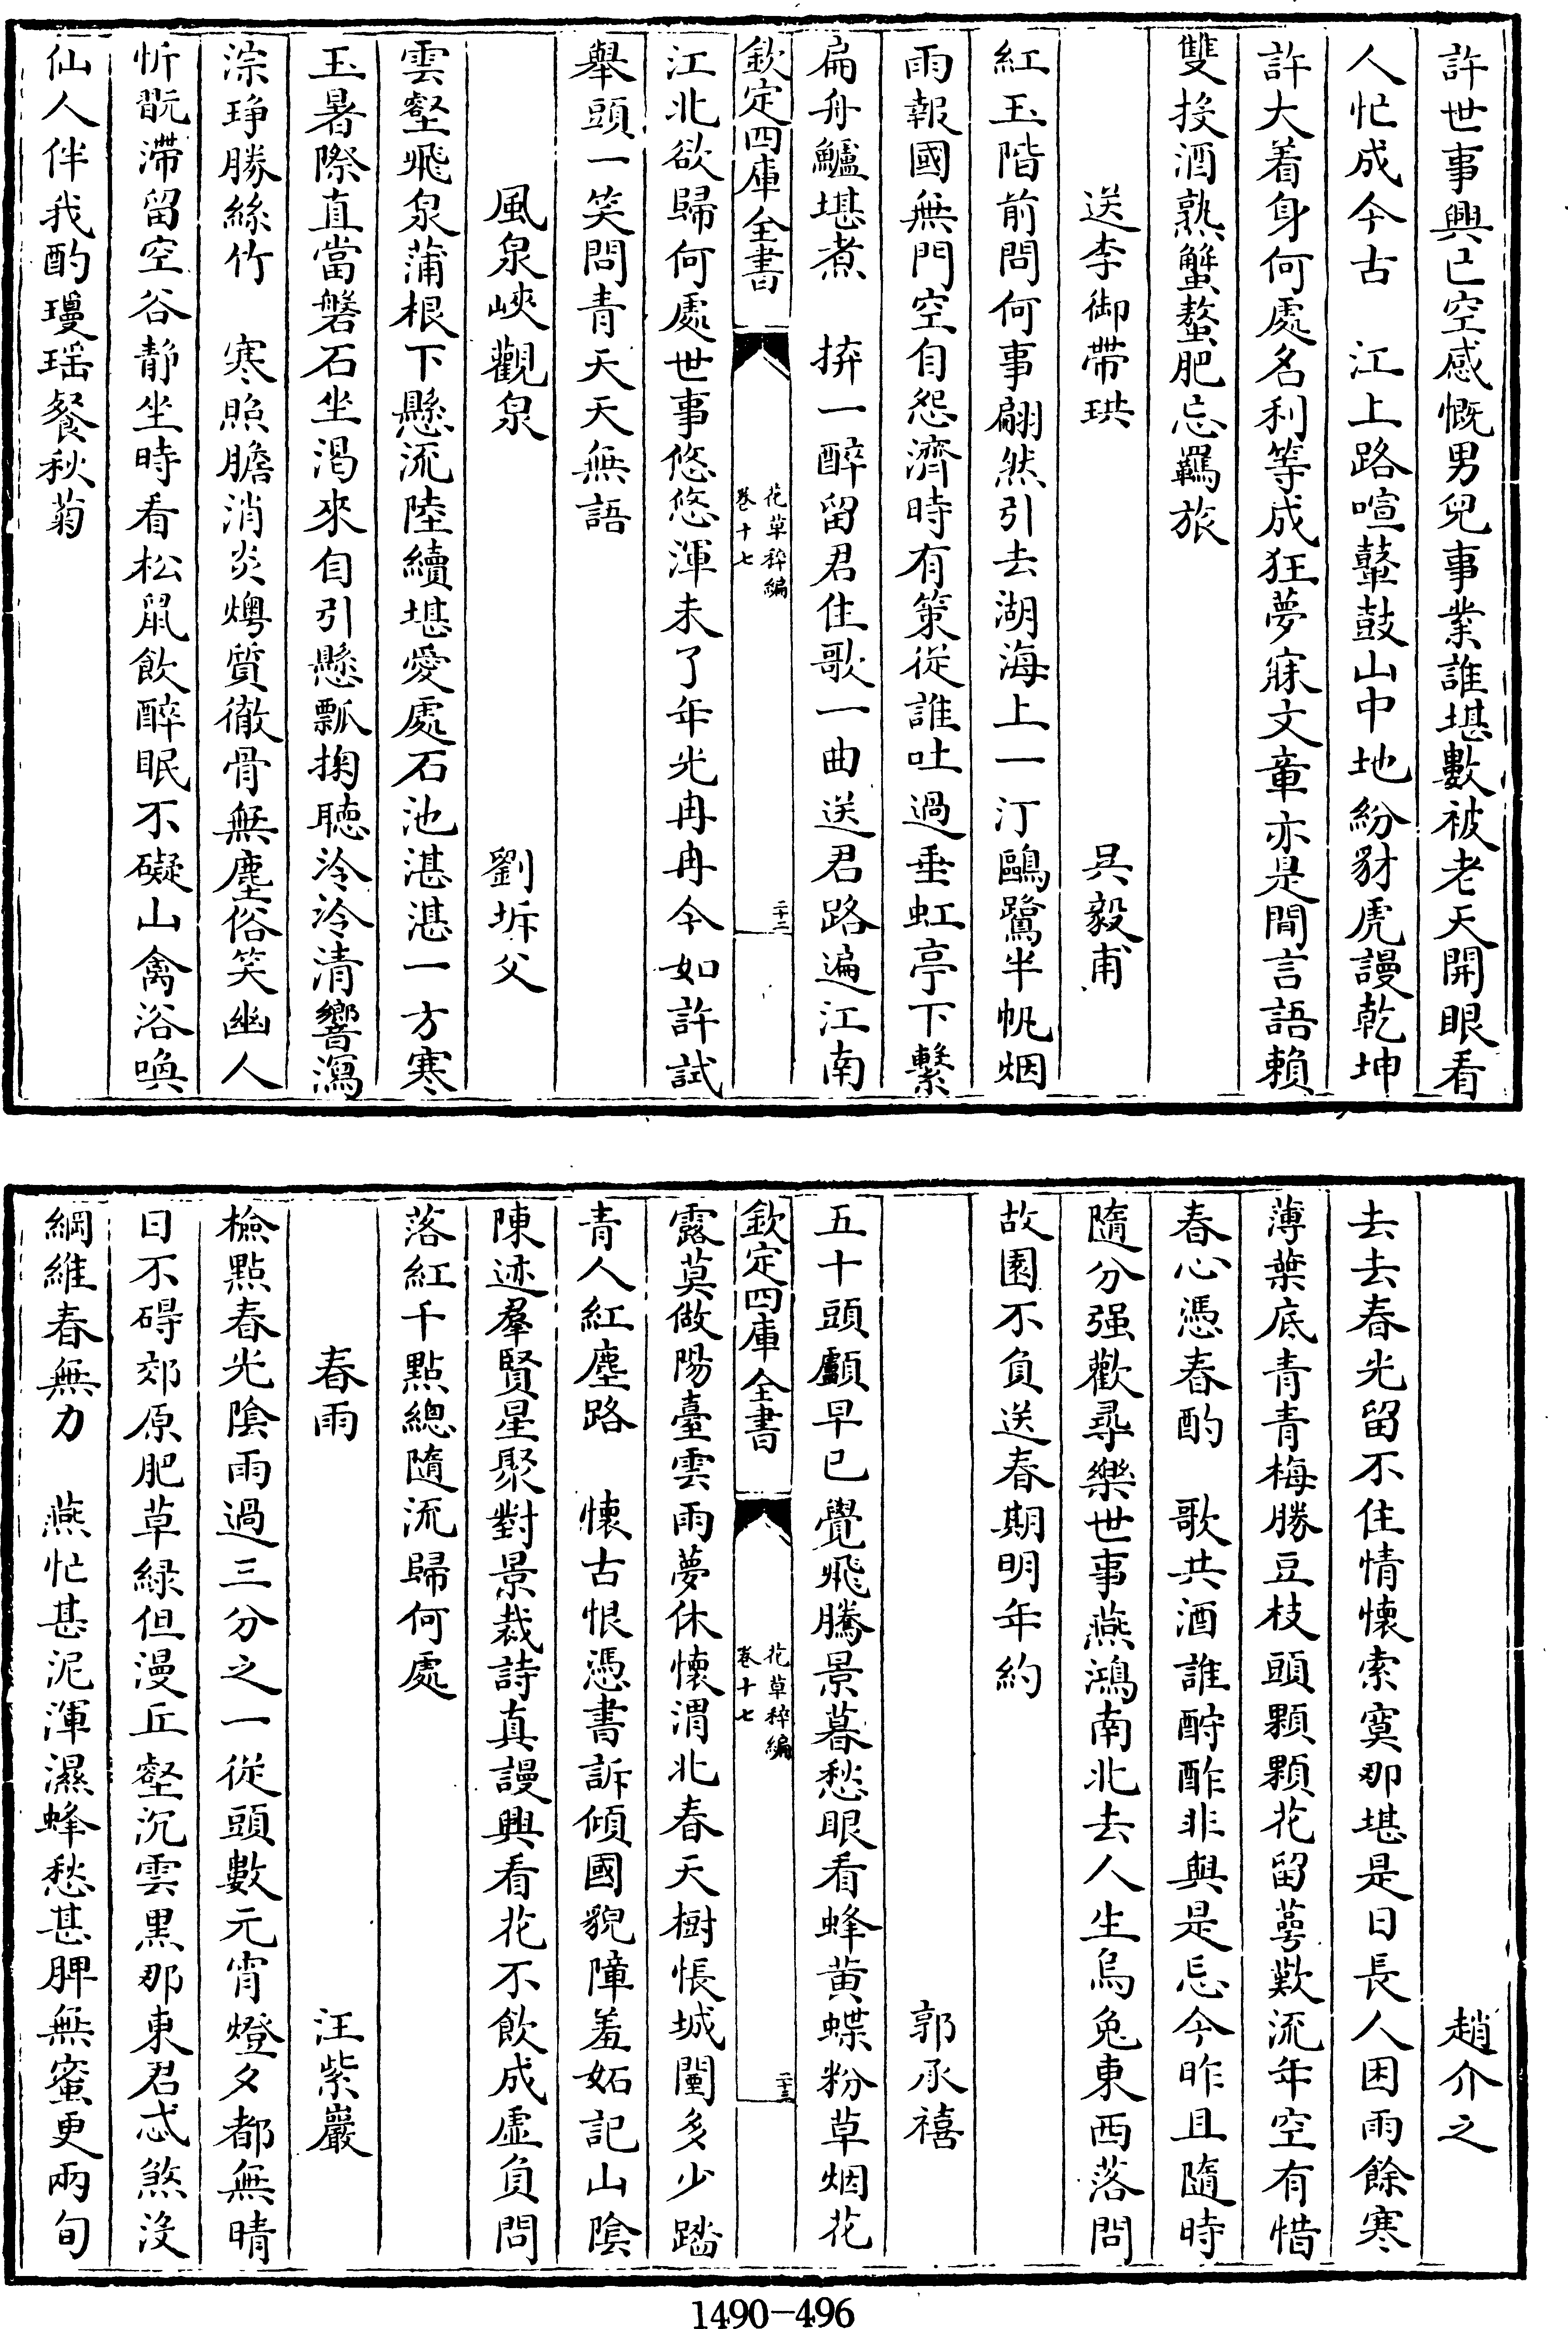 許世事興亡空感慨男兒事業誰堪數被老天開眼看
人忙成今古　江上路喧鼙鼓山中地紛豺虎謾乾坤
許大着身何處名利等成狂夢寐文章亦是閒言語賴
雙投酒熟蟹螯肥忘羈旅
送李御帶珙　吳毅甫
紅玉階前問何事翩然引去湖海上一汀鷗鷺半帆烟
雨報國無門空自怨濟時有策從誰吐過垂虹亭下繫
扁舟鱸堪煮　拚一醉留君住歌一曲送君路遍江南
欽定四庫全書　花草稡編　卷十七　二十二
江北欲歸何處世事悠悠渾未了年光冉冉今如許試
舉頭一笑問青天天無語
風泉峽觀泉　劉坼父
雲壑飛泉蒲根下懸流陸續堪愛處石池湛湛一方寒
玉暑際直當磐石坐渴來自引懸瓢掬聽泠泠清響瀉
淙琤勝絲竹　寒照膽消炎燠質徹骨無塵俗笑幽人
忻翫滯留空谷靜坐時看松鼠飲醉眠不礙山禽浴喚
仙人伴我酌瓊瑶餐秋菊
趙介之
去去春光留不住情懷索寞那堪是日長人困雨餘寒
薄葉底青青梅勝豆枝頭顆顆花留萼歎流年空有惜
春心憑春酌　歌共酒誰酹酢非與是忘今昨且隨時
隨分强歡尋樂世事燕鴻南北去人生烏兔東西落問
故園不負送春期明年約
郭承禧
五十頭顱早已覺飛騰景暮愁眼看蜂黄蝶粉草烟花
欽定四庫全書　花草稡編　卷十七　二十三
露莫做陽臺雲雨夢休懷渭北春天樹悵城闉多少踏
青人紅塵路　懷古恨憑書訴傾國貌障羞妬記山陰
陳迹羣賢星聚對景裁詩真謾興看花不飲成虛負問
落紅千點總隨流歸何處
春雨　汪紫巖
檢點春光陰雨過三分之一從頭數元宵燈夕都無晴
日不碍郊原肥草緑但漫丘壑沉雲黑那東君忒煞沒
綱維春無力　燕忙甚泥渾濕蜂愁甚脾無蜜更兩旬
1490—496